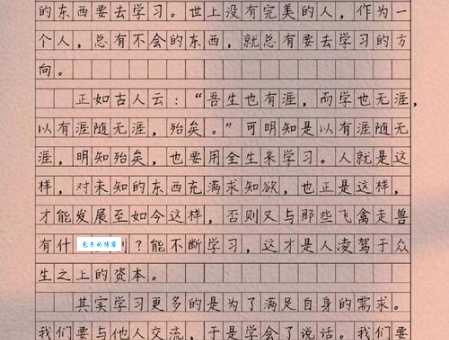 的东西要去学习。世上没有完美的人，作为一
个人，总有不会的东西，就总有要去学习的方
向。
正如古人云：“吾生也有涯，而学也无涯，
以有涯随无涯，殆矣。”可明知是以有涯随无
涯，明知殆矣，也要用全生来学习。人就是这
样，对未知的东西充满求知欲，也正是这样，
才能发展至如今这样，否则又与那些飞禽走兽
有什 别？能不断学习，这才是人凌驾于众
生之上的资本。
其实学习更多的是为了满足自身的需求。
我们要与他人交流，于是学会了说话。我们要